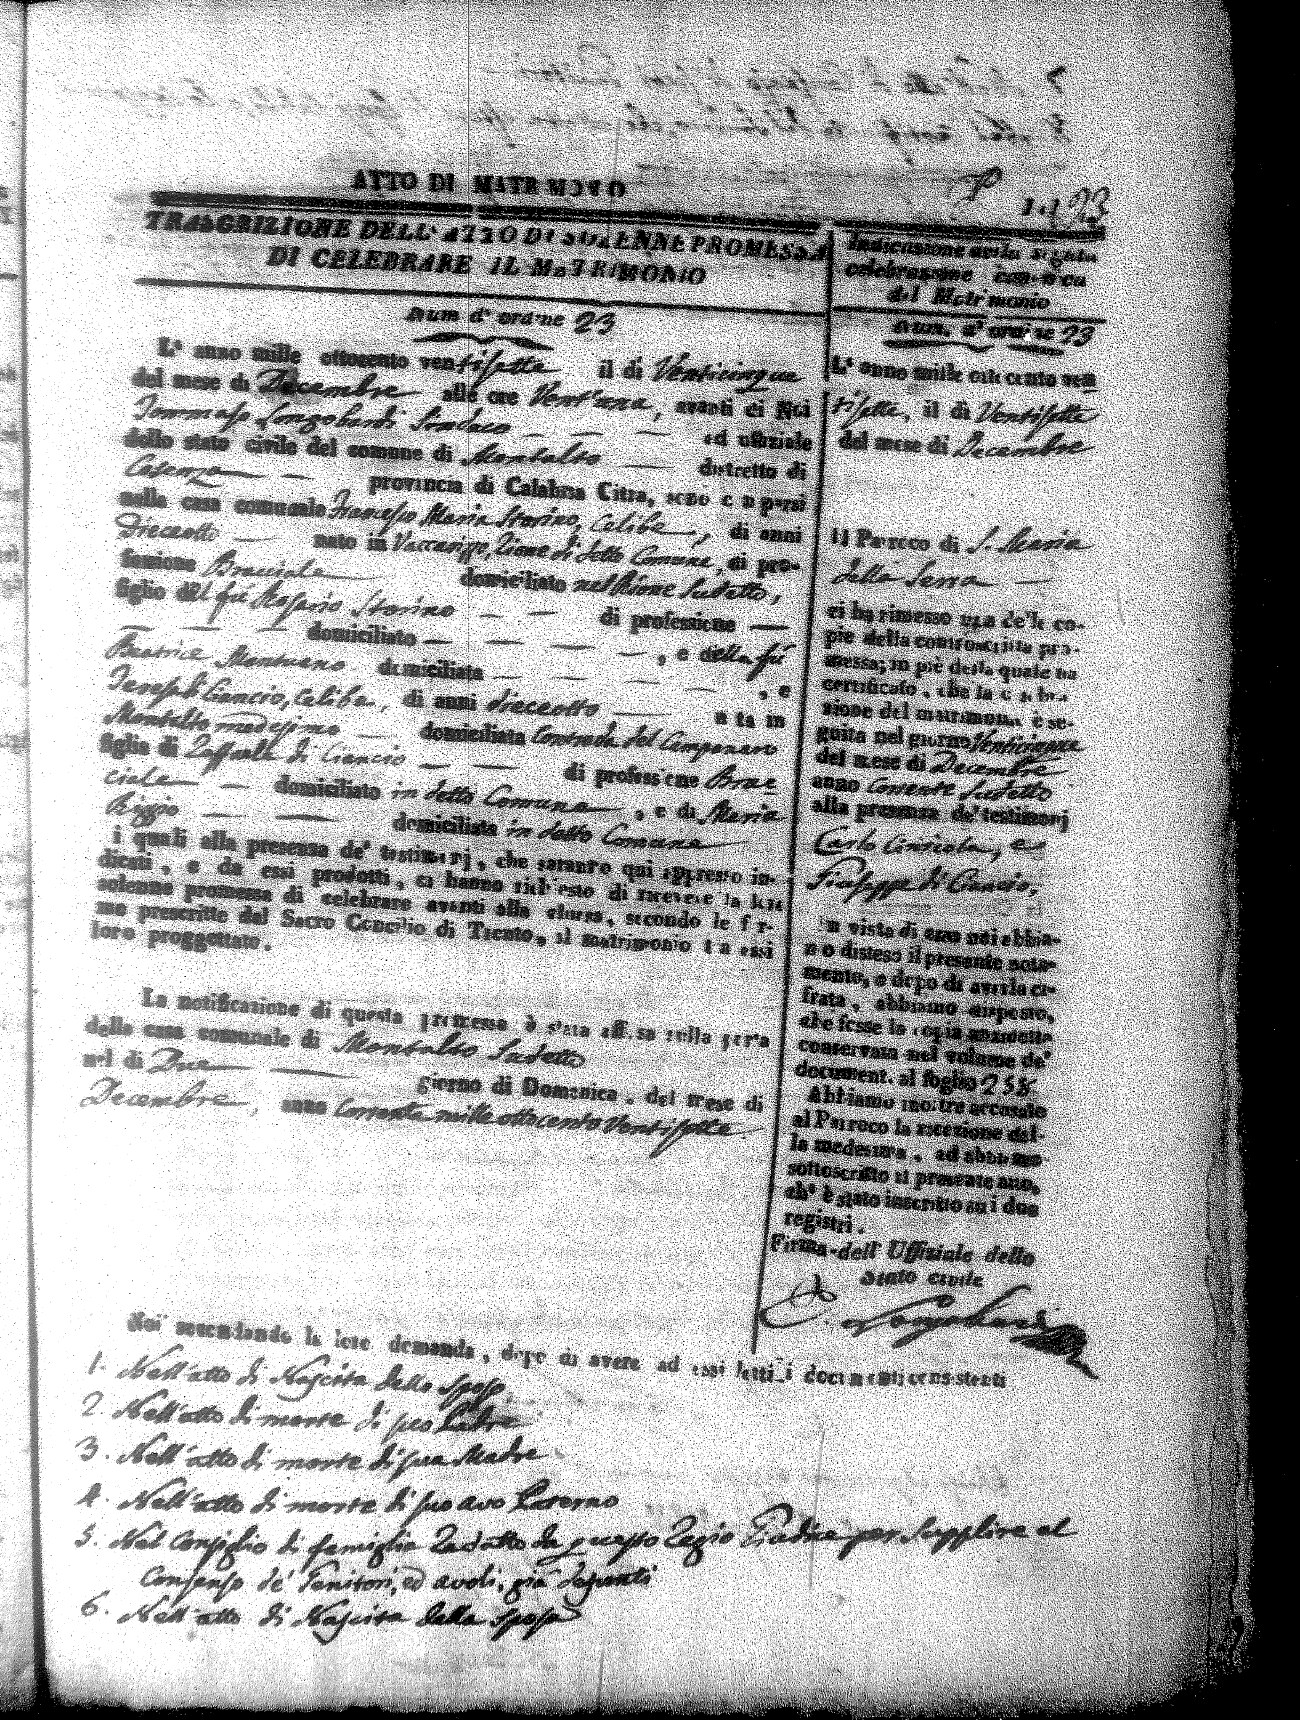 ATTO DI MATRIMONIO
23
TRASCRIZIONE DELL'ATTO DI SOLENNE PROMESSA
DI CELEBRARE IL MATRIMONIO
Num d'ordine 23
L'anno mille ottocento ventisette il di Venticinque
del mese di Decembre alle ore Vent'una, avanti di Noi
Tommaso Longobardi Sindaco ed uffiziale
dello stato civile del comune di Montalto distretto di
Cosenza provincia di Calabria Citra, sono comparsi
nella casa comunale Francesco Maria Storino, Celibe, di anni
Dieceotto nato in Vaccarizzo, Rione di detto Comune, di pro-
fessione Bracciale domiciliato nel Rione Sudetto,
figlio del fù Rosario Storino di professione
domiciliato , e della fù
Beatrice Mantuano domiciliata , e
Teresa di Ciancio, Celibe, di anni dieceotto nata in
Montalto medesimo domiciliata Contrada del Campanaro
figlia di Raffaele di Ciancio di professione Brac
ciale domiciliato in detto Comune, e di Maria
domiciliata in detto Comune
i quali alla presenza de' testimonj, che saranno qui appresso in-
dicati, e da essi prodotti, ci hanno richiesto di ricevere la loro
solenne promessa di celebrare avanti alla chiesa, secondo le for-
me prescritte dal Sacro Concilio di Trento, il matrimonio tra essi
loro proggettato.
La notificazione di questa promessa è stata affissa sulla porta
della casa comunale di Montalto Sudetto
nel di Due giorno di Domenica, del mese di
Decembre, anno Corrente mille ottocento Ventisette.
Indicazione della seguita
celebrazione canonica
del Matrimonio
Num. d'ordine 23
L'anno mille ottocento ven
tisette, il di Ventisette
del mese di Decembre
Il Parroco di S. Maria
della Serra
ci ha rimesso una delle co-
pie della controscritta pro-
messa; in piè della quale ha
certificato, che la celebra-
zione del matrimonio è se-
guita nel giorno Venticinque
del mese di Decembre
anno Corrente Sudetto
alla presenza de' testimonj
Carlo, e
Giuseppe di Ciancio,
In vista di essa noi abbia-
mo disteso il presente nota-
mento, e dopo di averla ci-
frata, abbiamo disposto,
che fosse la copia anzidetta
conservata nel volume de'
document. al foglio 258
Abbiamo inoltre accusato
al Parroco la ricezione del-
la medesima, ed abbiamo
sottoscritto il presente atto,
ch'è stato inscritto su i due
registri.
Firma dell' Uffiziale dello
Stato civile
Longobardi
Noi secondando la loro domanda, dopo di avere ad essi letti i documenti consistenti
1. Nell'atto di Nascita dello sposo
2. Nell'atto di morte di suo Padre
3. Nell'atto di morte di sua Madre
4. Nell'atto di morte di suo avo Paterno
5. Nel Consiglio di famiglia Redatto da questo Regio Giudice per Supplire al
Consenso de' Genitori, ed avoli, già defunti
6. Nell'atto di Nascita della sposa